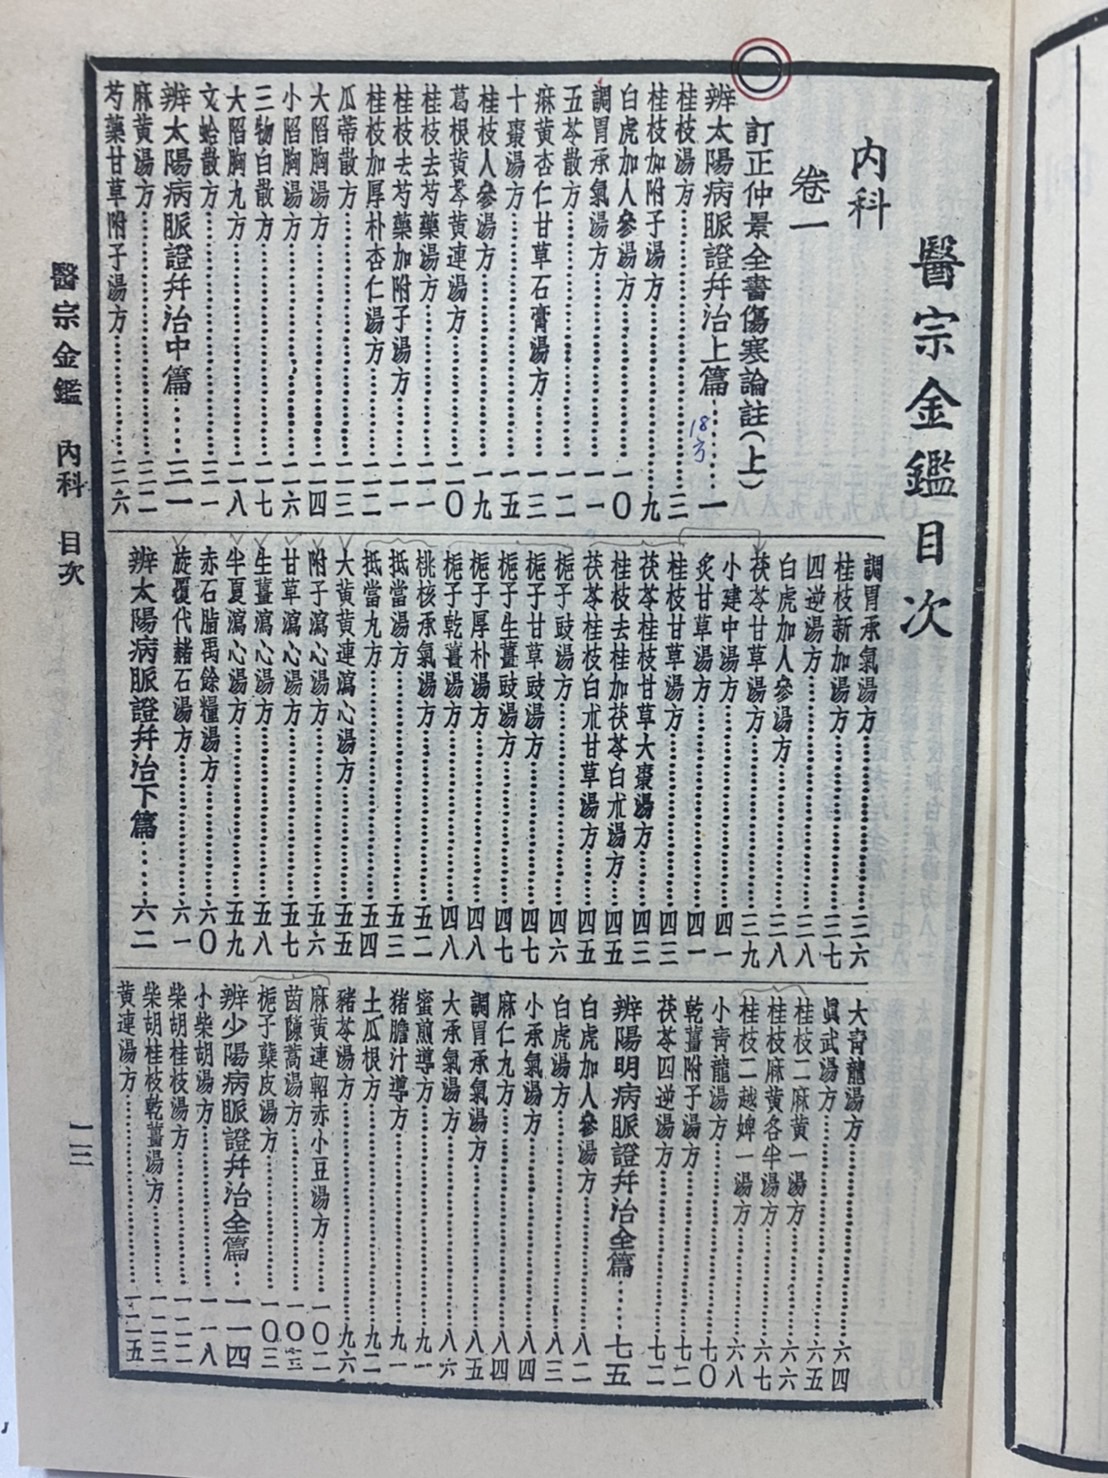 醫宗金鑑目次
內科
卷一
訂正仲景全書傷寒論註(上)
辨太陽病脈證幷治上篇……一
18方
桂枝湯方……三
桂枝加附子湯方……九
白虎加人參湯方……一〇
調胃承氣湯方……一一
五苓散方……一二
麻黃杏仁甘草石膏湯方……一三
十棗湯方……一五
桂枝人參湯方……一九
葛根黃芩黃連湯方……二〇
桂枝去芍藥湯方……二一
桂枝去芍藥加附子湯方……二一
桂枝加厚朴杏仁湯方……二二
瓜蒂散方……二三
大陷胸湯方……二四
小陷胸湯方……二六
三物白散方……二七
大陷胸丸方……二八
文蛤散方……三一
辨太陽病脈證幷治中篇……三一
麻黃湯方……三二
芍藥甘草附子湯方……三六
調胃承氣湯方……三六
桂枝新加湯方……三七
四逆湯方……三八
白虎加人參湯方……三八
茯苓甘草湯方……三九
小建中湯方……四一
炙甘草湯方……四一
桂枝甘草湯方……四三
茯苓桂枝甘草大棗湯方……四三
桂枝去桂加茯苓白朮湯方……四五
茯苓桂枝白朮甘草湯方……四五
梔子豉湯方……四六
梔子甘草豉湯方……四七
梔子生薑豉湯方……四七
梔子厚朴湯方……四八
梔子乾薑湯方……四八
桃核承氣湯方……五二
抵當湯方……五三
抵當丸方……五四
大黃黃連瀉心湯方……五五
附子瀉心湯方……五六
甘草瀉心湯方……五七
生薑瀉心湯方……五八
半夏瀉心湯方……五九
赤石脂禹餘糧湯方……六〇
旋覆代赭石湯方……六一
辨太陽病脈證幷治下篇……六二
大靑龍湯方……六四
眞武湯方……六五
桂枝二麻黃一湯方……六六
桂枝麻黃各半湯方……六七
桂枝二越婢一湯方……六八
小靑龍湯方……七〇
乾薑附子湯方……七二
茯苓四逆湯方……七二
辨陽明病脈證幷治全篇……七五
白虎加人參湯方……八二
白虎湯方……八三
小承氣湯方……八四
麻仁丸方……八四
調胃承氣湯方……八五
大承氣湯方……八六
蜜煎導方……九一
猪膽汁導方……九一
土瓜根方……九二
豬苓湯方……九六
麻黃連軺赤小豆湯方……一〇二
茵蔯蒿湯方……一〇三
梔子蘗皮湯方……一〇三
辨少陽病脈證幷治全篇……一一四
小柴胡湯方……一一八
柴胡桂枝湯方……一二二
柴胡桂枝乾薑湯方……一二三
黃連湯方……一二五
醫宗金鑑 內科 目次
一三